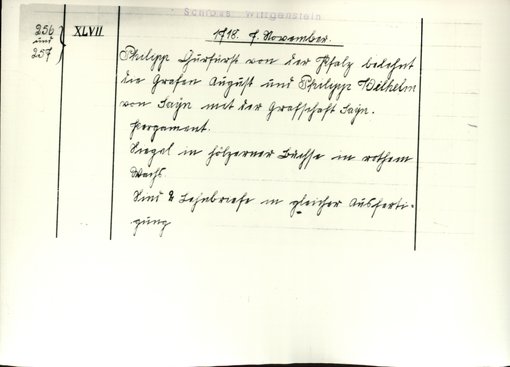 Schloss Wittgenstein
256 und 257
XLVII
1718. 7. November.
Philipp Curfürst von der Pfalz belehnt
die Grafen August und Philipp Wilhelm
von Sayn mit der Grafschaft Sayn.
Pergament.
Siegel in hölzerner Büchse in rothem
Wachs
Sind 2 Lehnbriefe in gleicher Ausferti-
gung